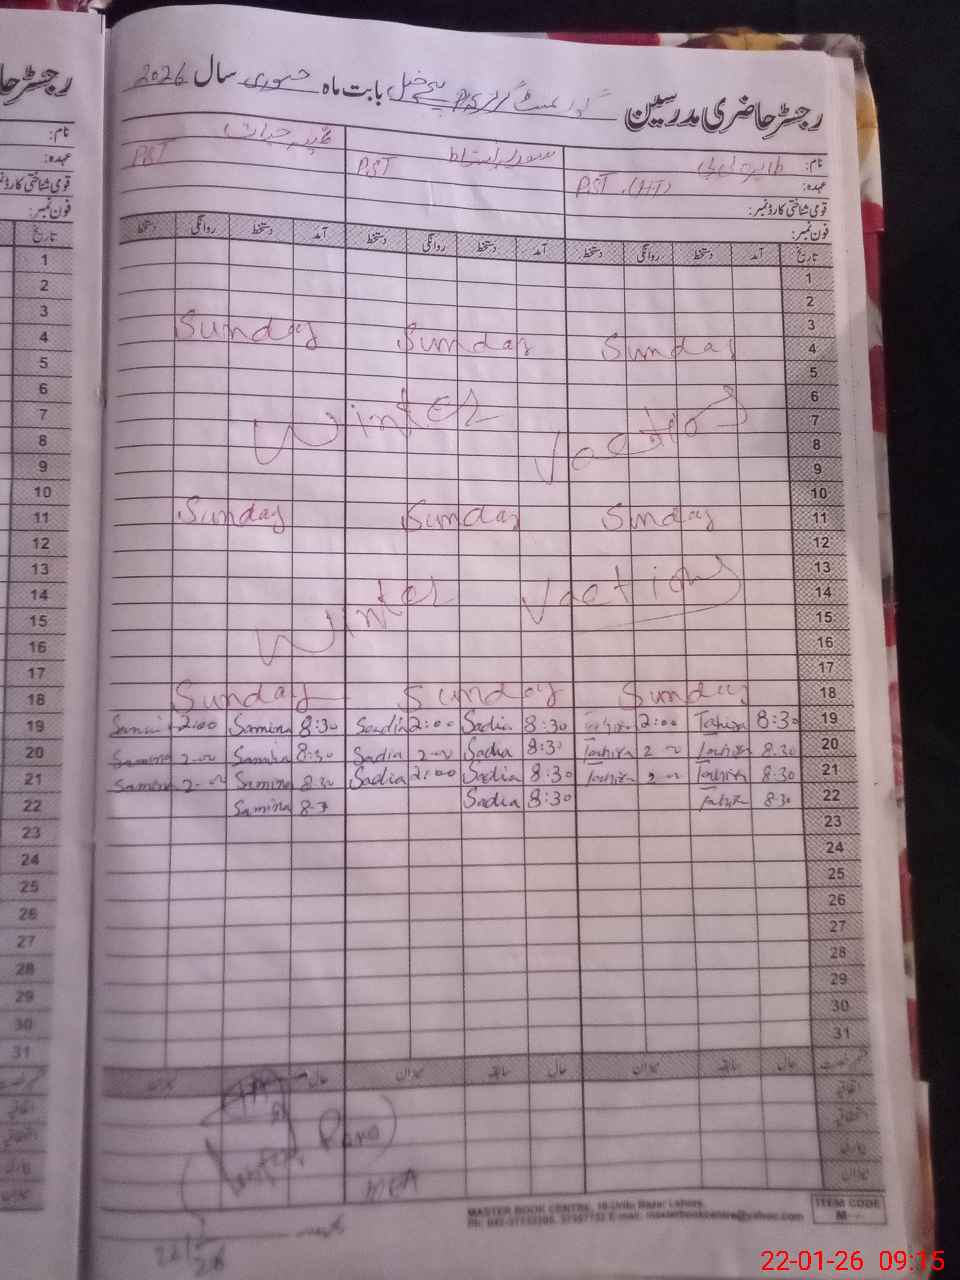 رجسٹر حاضری مدرسین گورنمنٹ گرلز بابت ماہ جنوری سال 2026
نام:
عہدہ: PST (HT) PST PST
قومی شناختی کارڈ نمبر:
فون نمبر:
تاریخ آمد دستخط روانگی دستخط آمد دستخط روانگی دستخط آمد دستخط روانگی دستخط
1
2
3
4 Sunday Sunday Sunday
5
6
7 Winter Vaction
8
9
10
11 Sunday Sunday Sunday
12
13
14 Winter Vactions
15
16
17
18 Sunday Sunday Sunday
19 8:30 Tahira 2:00 Tahira 8:30 Sadia 2:00 Sadia 8:30 Samina 2:00 Samina
20 8.30 Tahira 2 Tahira 8:30 Sadia 2 Sadia 8:30 Samina 2 Samina
21 8:30 Tahira 2 Tahira 8:30 Sadia 2:00 Sadia 8:30 Samina 2 Samina
22 8.30 Tahira 8:30 Sadia 8:3 Samina
23
24
25
26
27
28
29
30
31
حال سابقہ میزان حال سابقہ میزان حال میزان
اتفاقیہ
میزان
MEA
MASTER BOOK CENTRE, Urdu Bazar Lahore.
E-mail: masterbookcentre@yahoo.com
ITEM CODE
M
رجسٹر حا
نام:
عہدہ:
قومی شناختی کارڈ
فون نمبر:
تاریخ
1
2
3
4
5
6
7
8
9
10
11
12
13
14
15
16
17
18
19
20
21
22
23
24
25
26
27
28
29
30
31
22-01-26 09:15